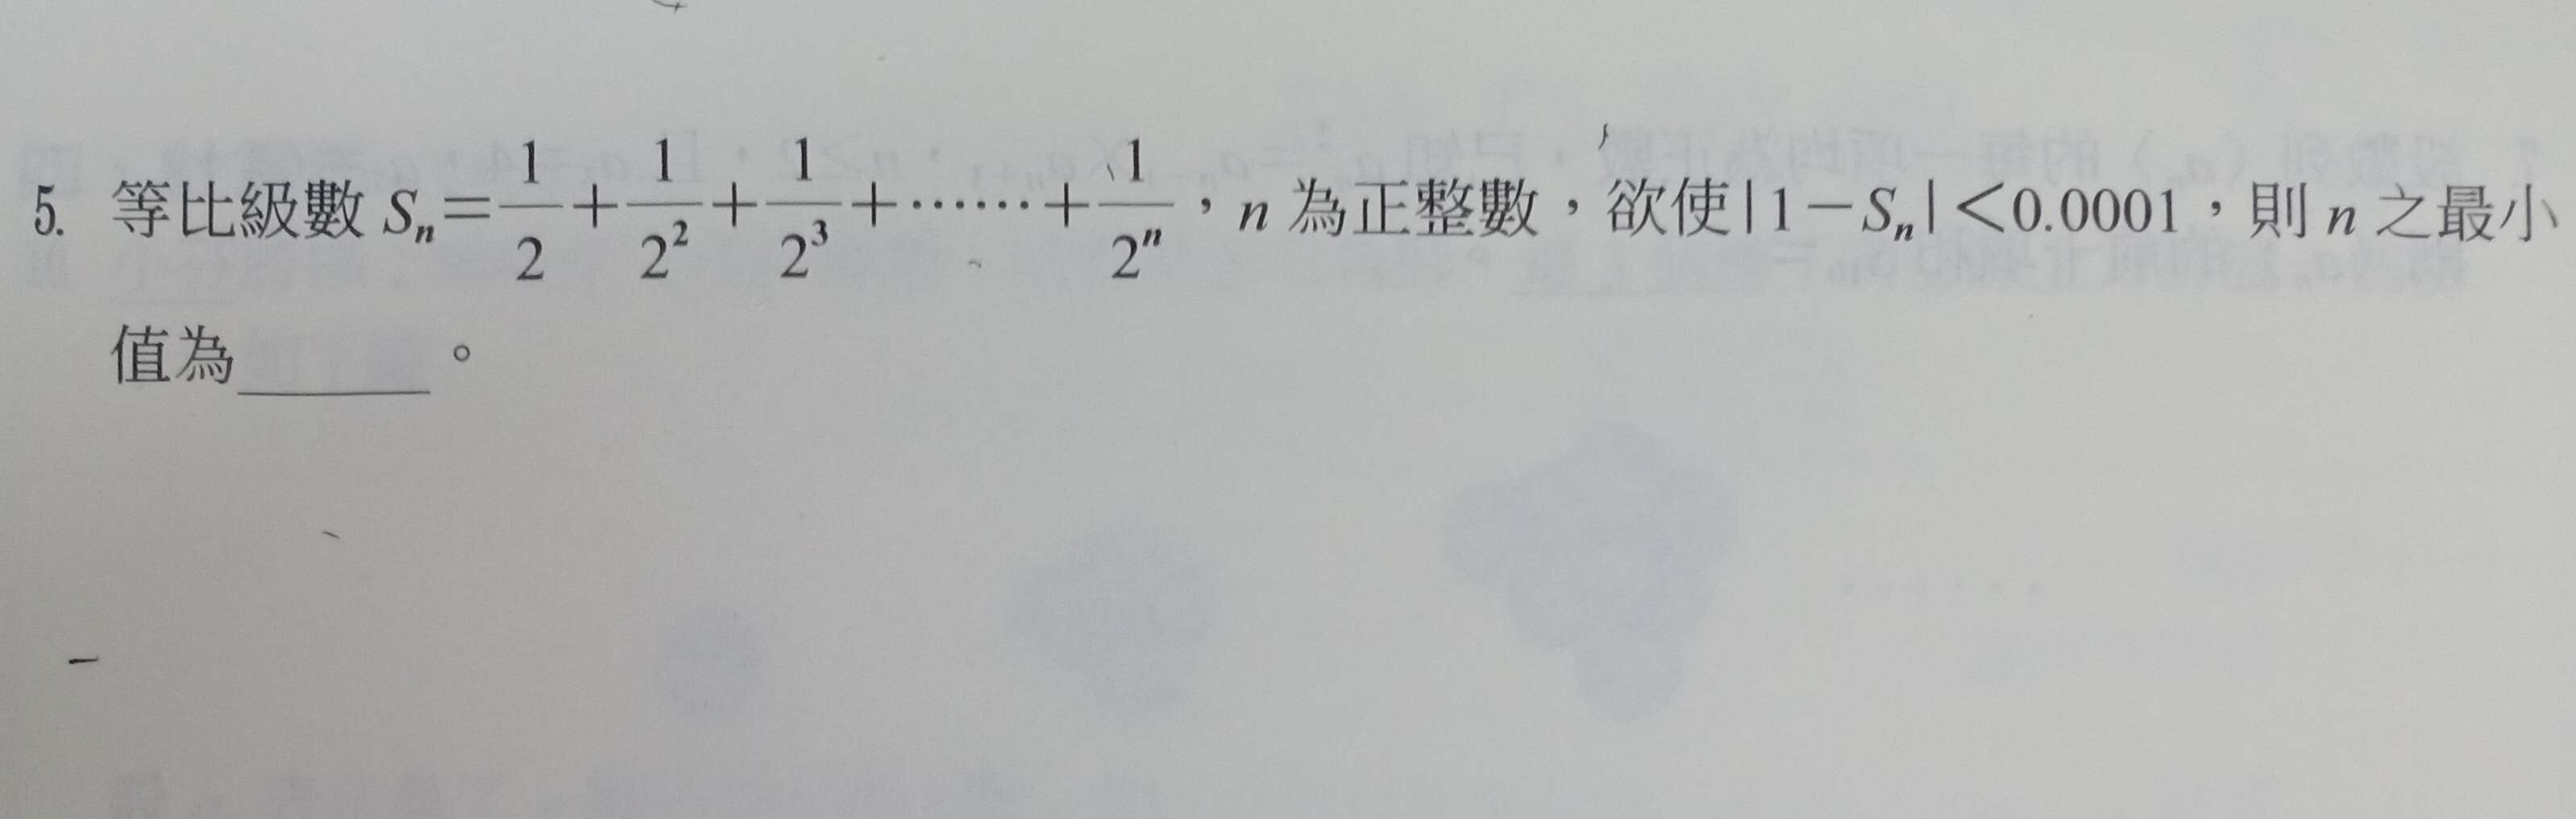 5. 等比級數 Sₙ=1/2+1/2²+1/2³+……+1/2ⁿ，n 為正整數，欲使|1－Sₙ|＜0.0001，則 n 之最小
值為______。